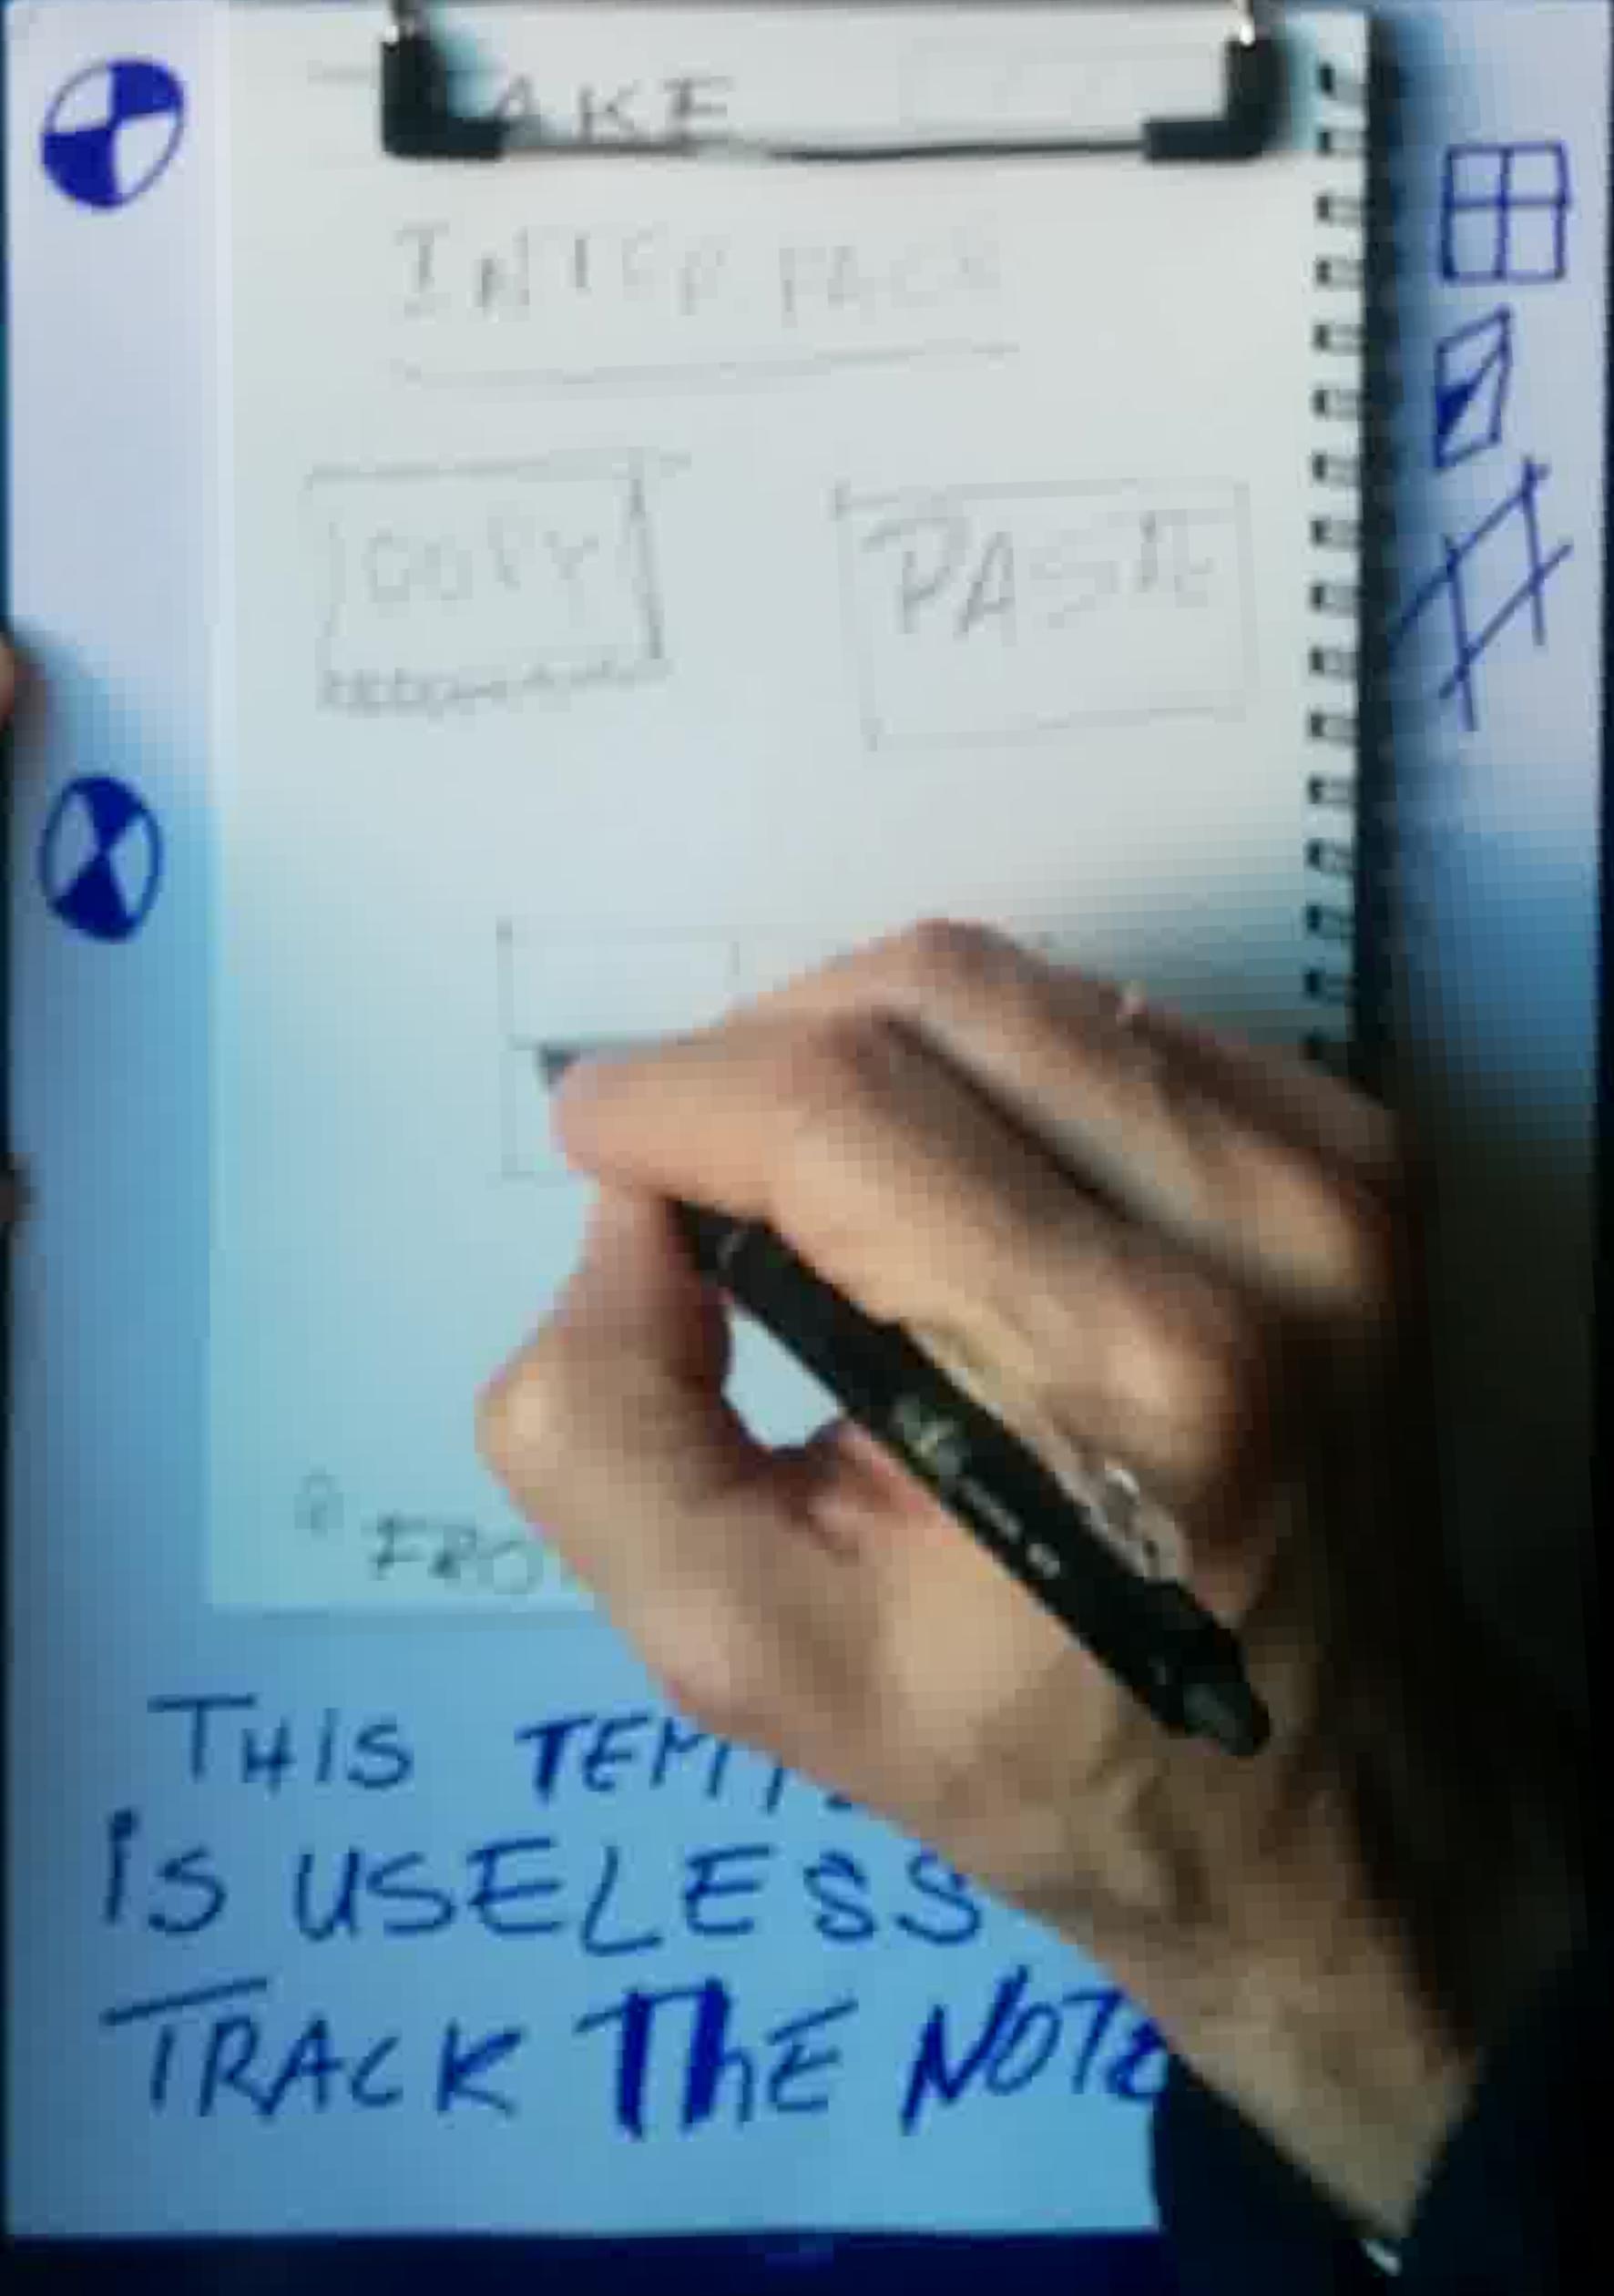 AKE
INTERFACE
COPY
PASTE
THIS
IS USELESS
TRACK THE NOTE